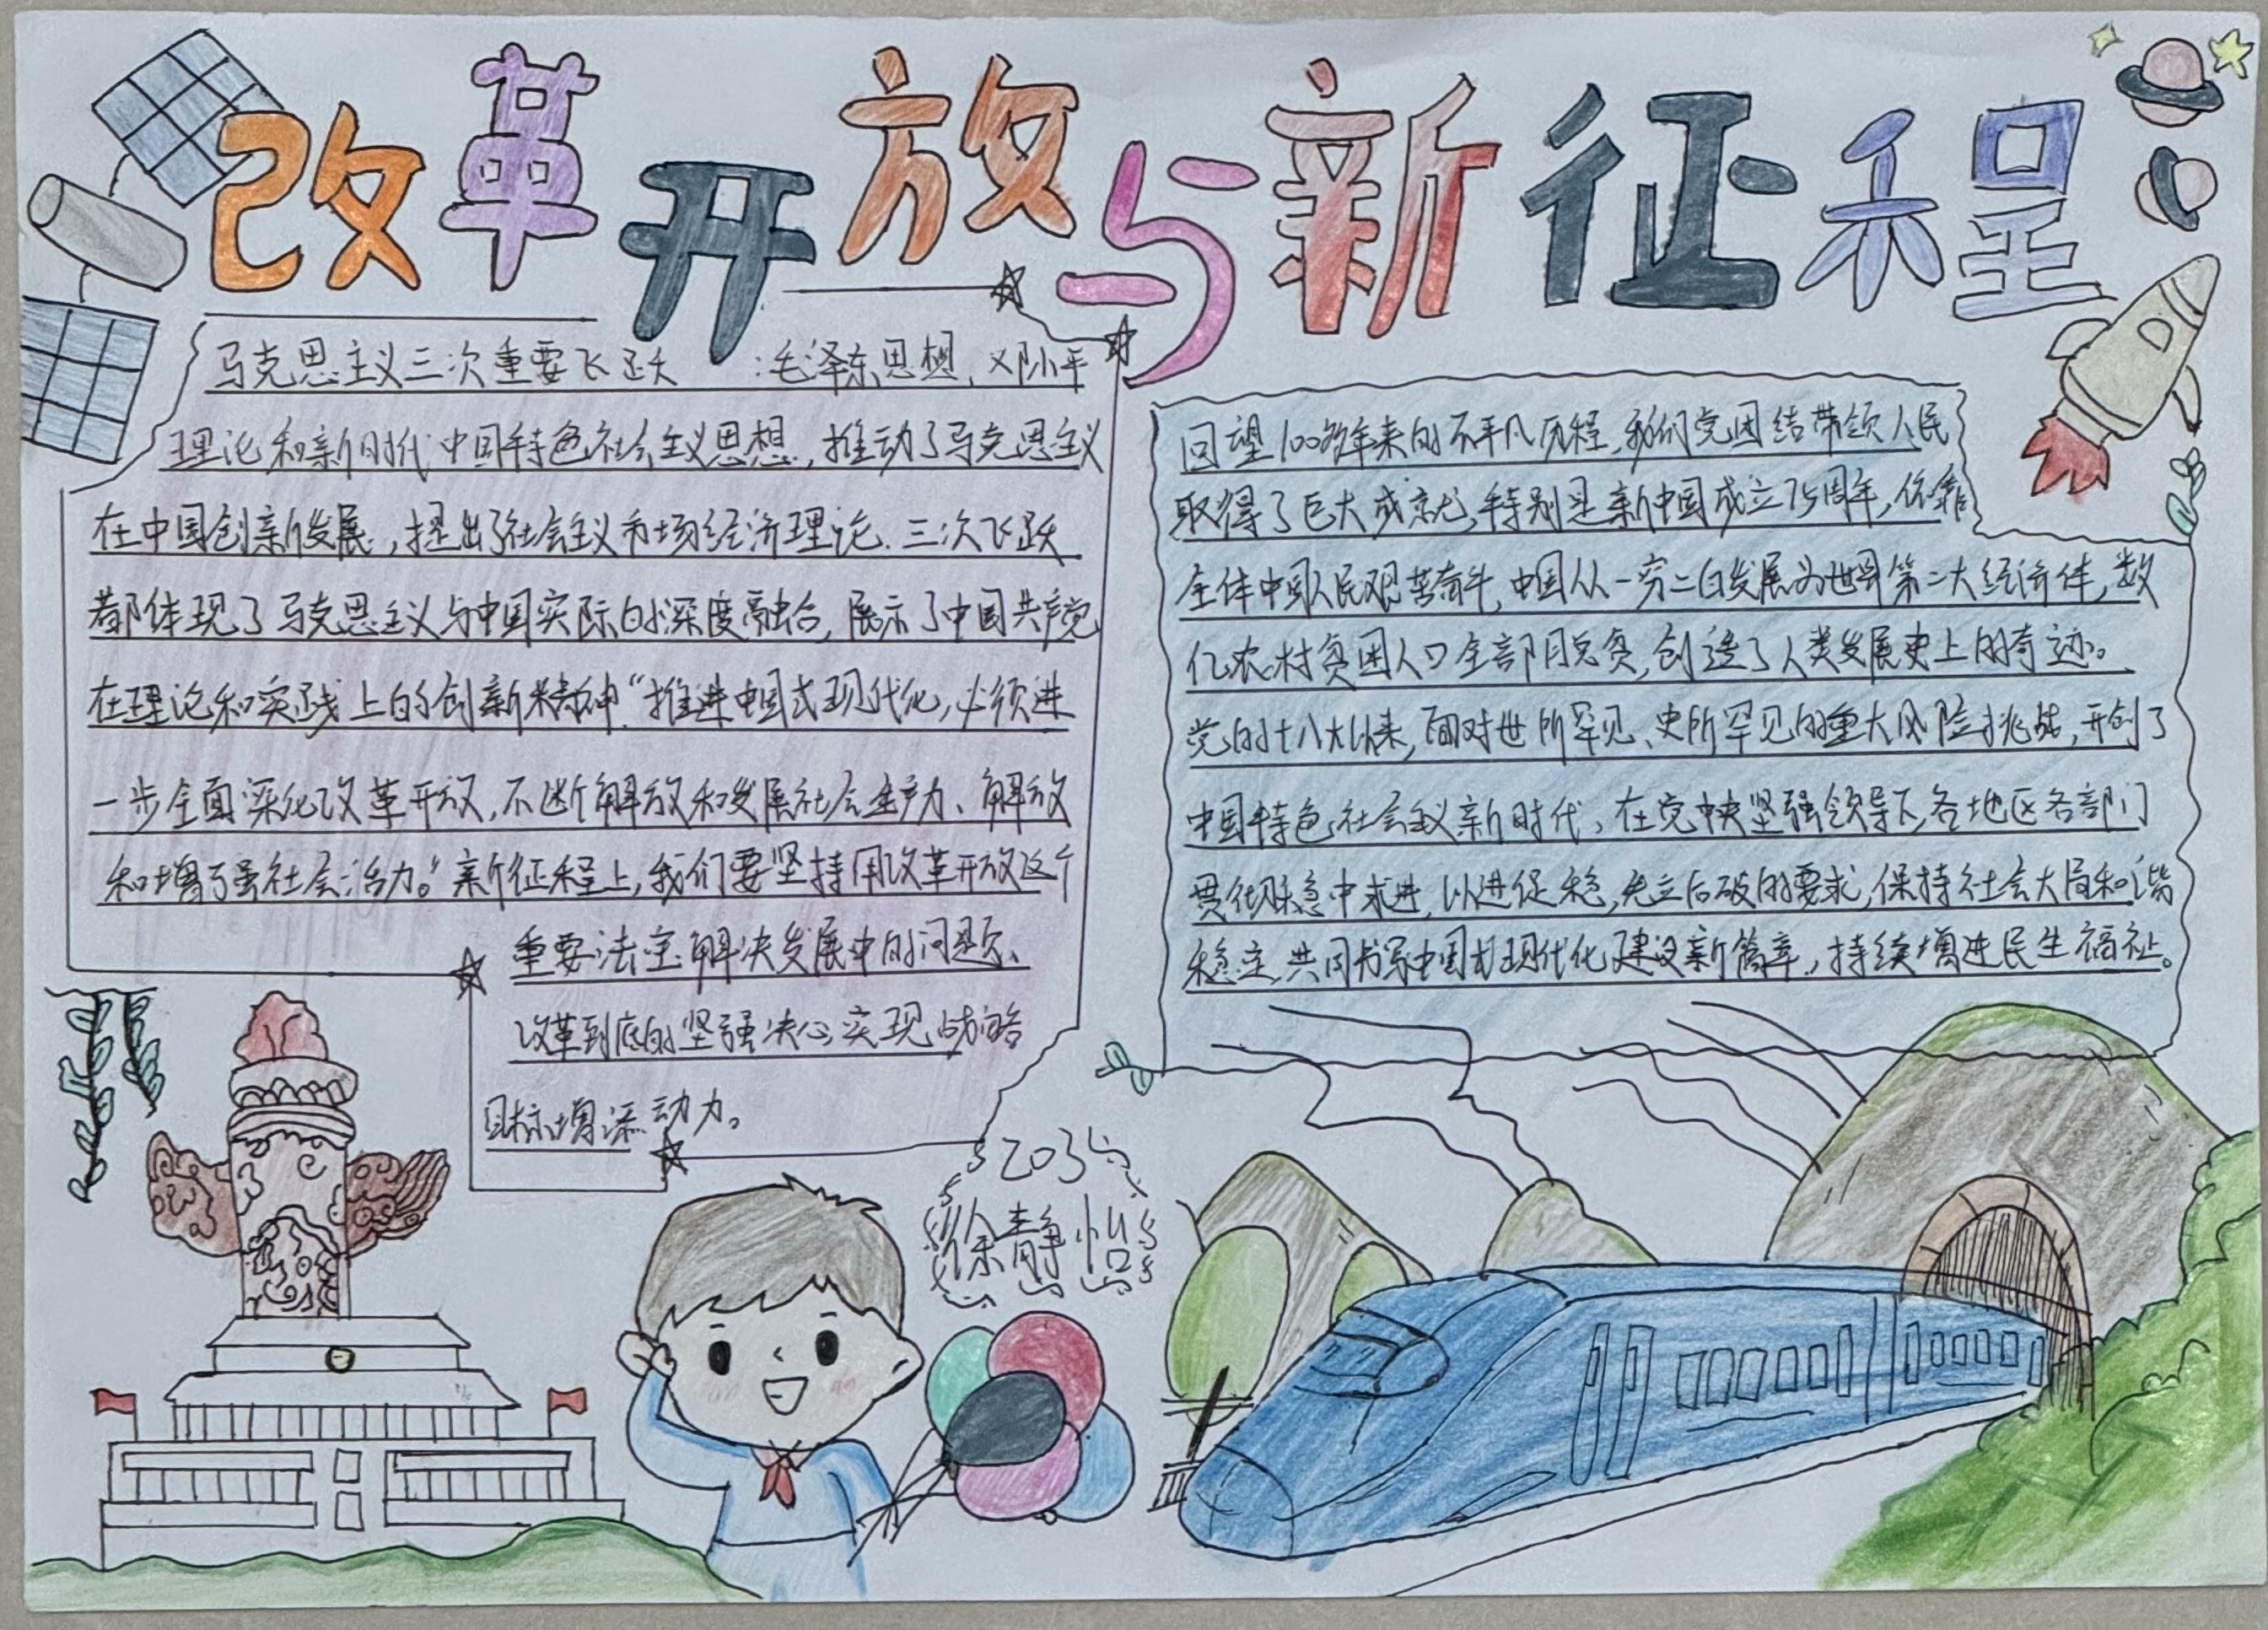 改革开放与新征程
马克思主义三次重要飞跃：毛泽东思想、邓小平
理论和新时代中国特色社会主义思想，推动了马克思主义
在中国创新发展，提出了社会主义市场经济理论.三次飞跃
都体现了马克思主义与中国实际的深度融合，展示了中国共产党
在理论和实践上的创新精神.“推进中国式现代化，必须进
一步全面深化改革开放，不断解放和发展社会生产力、解放
和增强社会活力。”新征程上，我们要坚持用改革开放这个
重要法宝解决发展中的问题、
改革到底的坚强决心实现战略
目标增添动力。
回望100多年来的不平凡历程，我们党团结带领人民
取得了巨大成就，特别是新中国成立75周年，依靠
全体中国人民艰苦奋斗，中国从一穷二白发展为世界第二大经济体，数
亿农村贫困人口全部脱贫，创造了人类发展史上的奇迹。
党的十八大以来，面对世所罕见、史所罕见的重大风险挑战，开创了
中国特色社会主义新时代，在党中央坚强领导下，各地区各部门
贯彻稳中求进，以进促稳，先立后破的要求，保持社会大局和谐
稳定，共同书写中国式现代化建设新篇章，持续增进民生福祉。
徐静怡